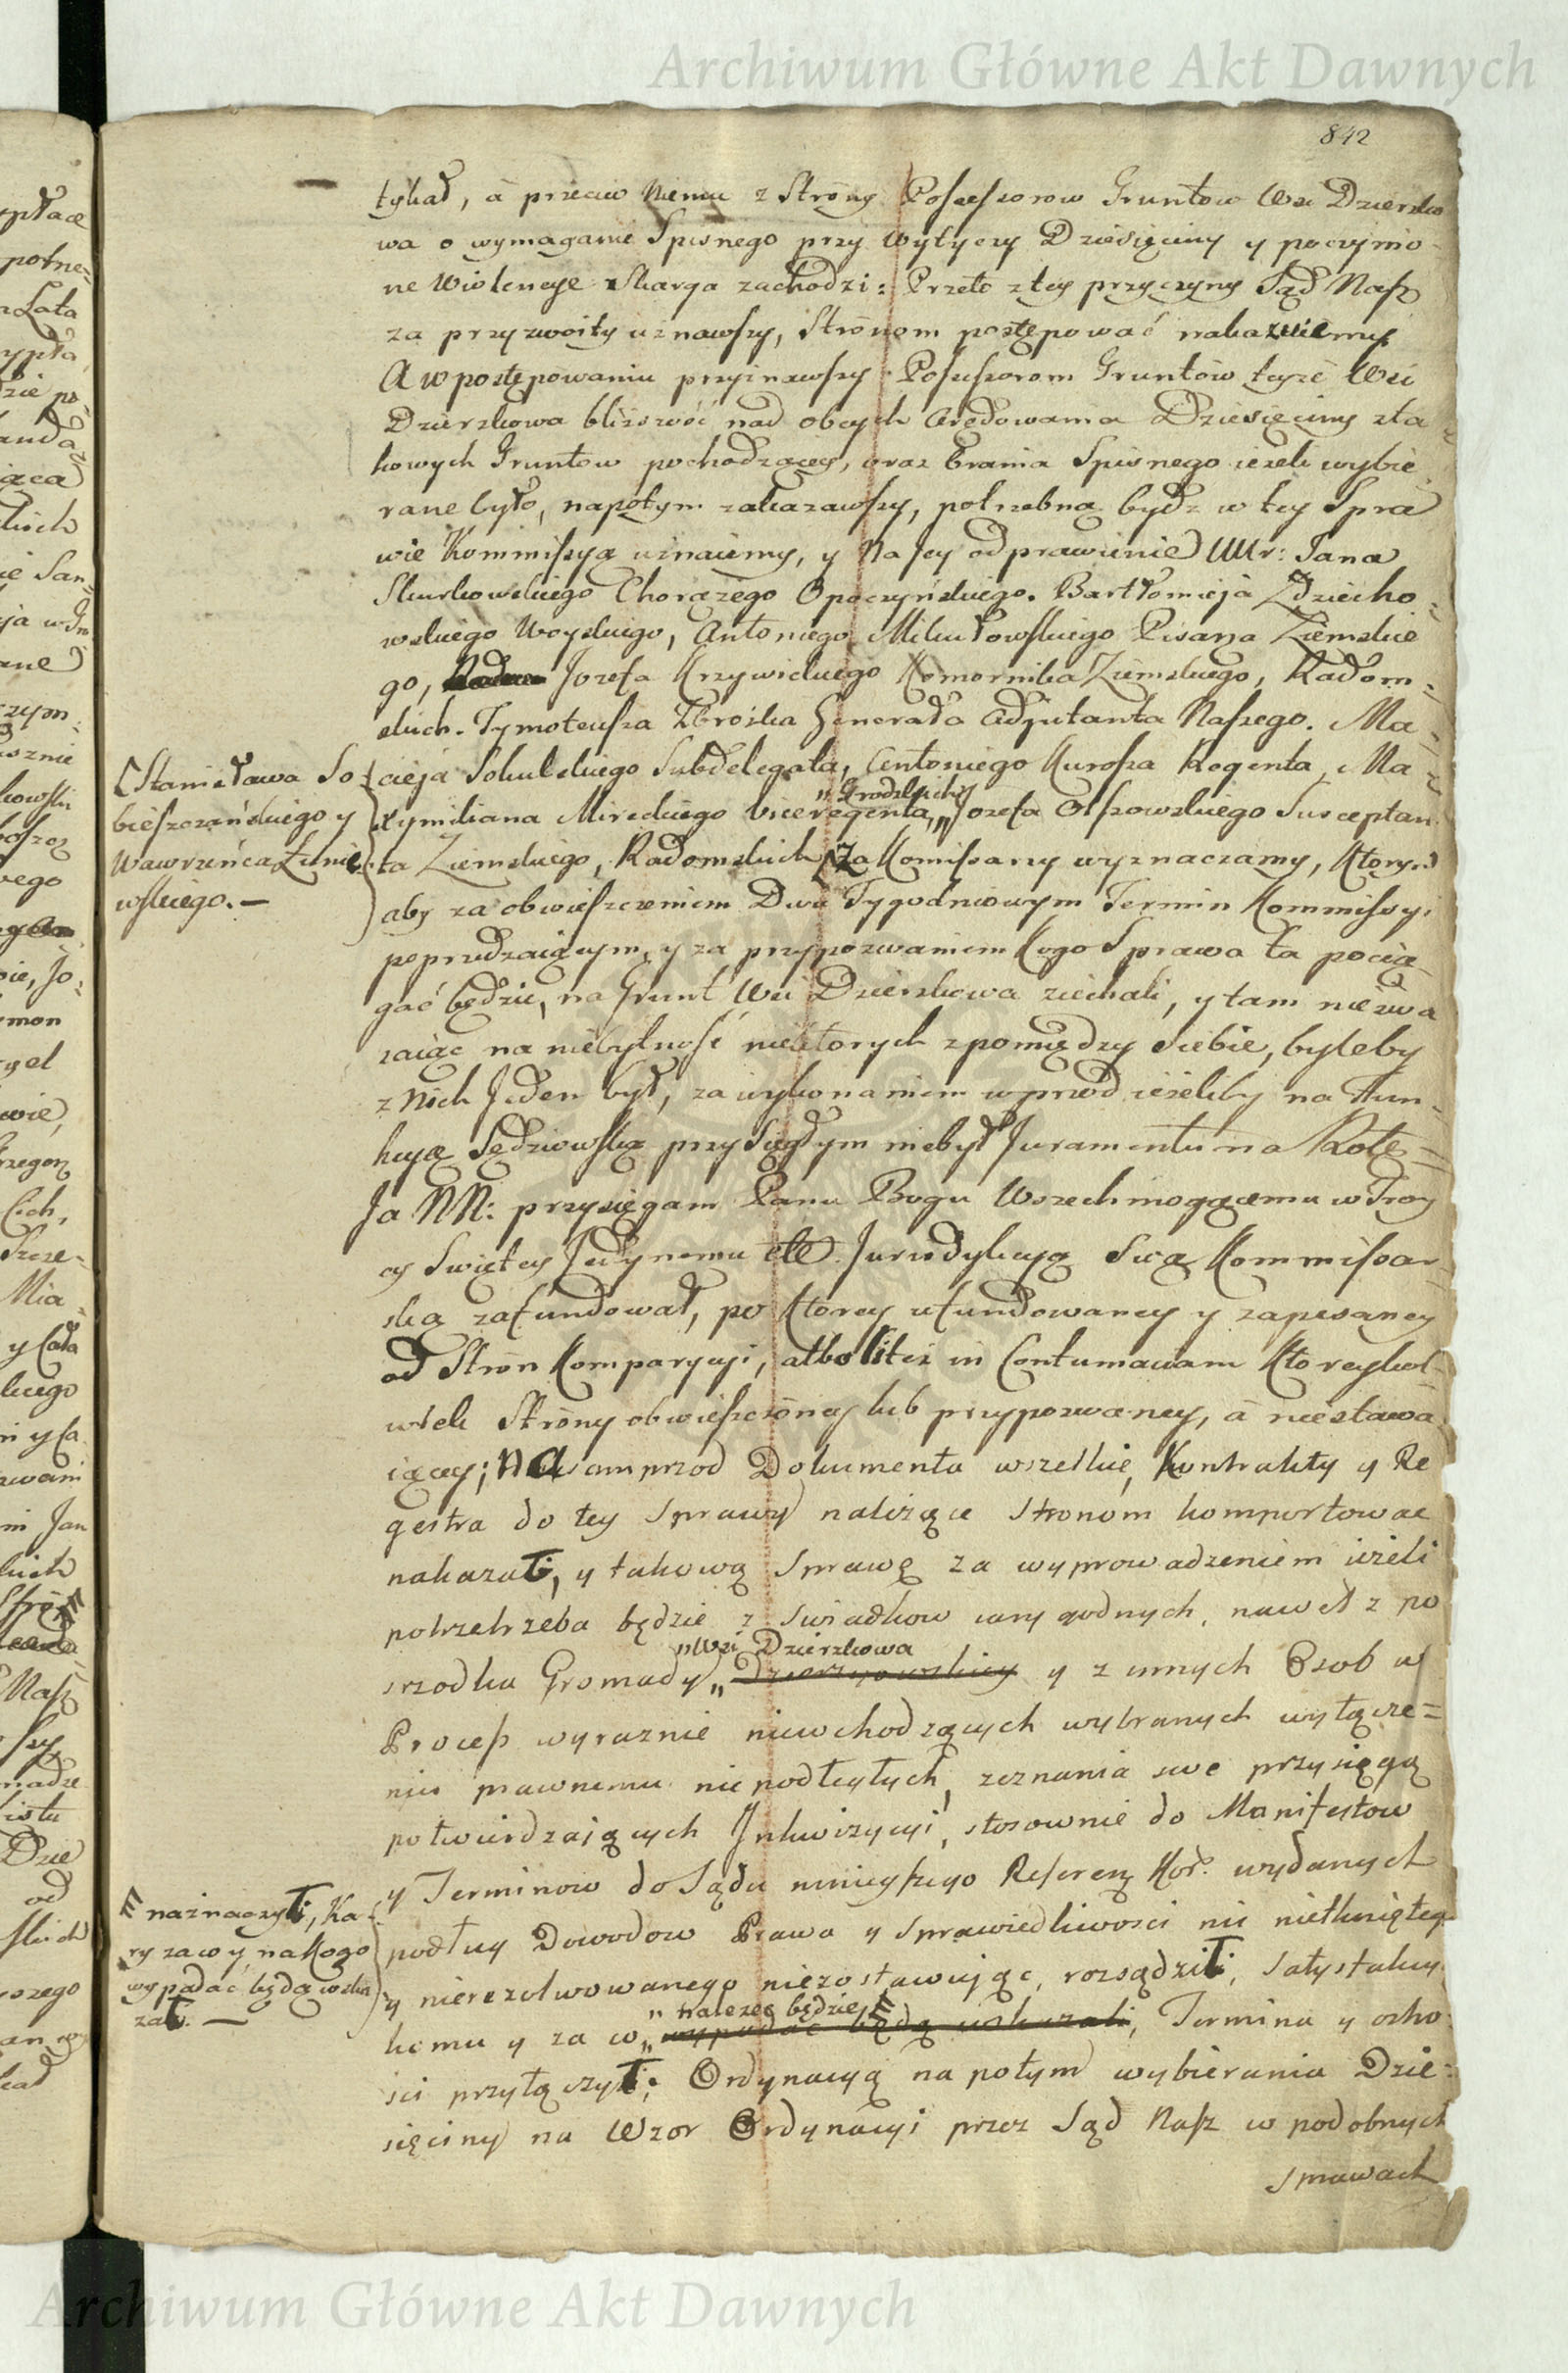 Archiwum Główne Akt Dawnych
842
tykał, á przeciw Niemu z Strony Possessorow Gruntow Wsi Dzierzko
wa o wymaganie Spisnego przy wytyczy Dziesięciny y poczynio-
ne Wiolencye skarga zachodzi: Przeto z tey przyczyny Sąd Nasz
za przyzwoity uznawszy, Stronom postępować nakazuiemy.
A w postępowaniu przyznawszy Possessorom Gruntow teyze Wsi
Dzierzkowa bliższość nad obcych Arędowania Dziesięciny z ta-
kowych Gruntow pochodzącey, oraz brania Spisnego ieżeli wybie
rane było, napotym zakazawszy, potrzebną bydz w tey Spra
wie Kommissyą uznaiemy, y Na Jey odprawienie Ur: Jana
Skurkowskiego Chorążego Opoczyńskiego. Bartłomieja Zdziecho-
wskiego Woyskiego, Antoniego Mikułowskiego Pisarza Ziemskie
go, Jozefa Krzywickiego Komornika Ziemskiego, Radom-
skich. Tymoteusza Zbroska Generała Adjutanta Naszego. Ma-
[Stanisława So-
bieszczańskiego y
Wawrzeńca Łunie-
wskiego.—
cieja Sokulskiego Subdelegata, Antoniego Kurosza Regenta, Ma-
„Grodzkich
xymiliana Mireckiego Viceregenta „ Jozefa Olszowskiego Susceptan
ta Ziemskiego, Radomskich [Za Komissarzy wyznaczamy, Ktorzy
aby za obwieszczeniem Dwu Tygodniowym Termin Kommissyi
poprzedzaiącym, y za przypozwaniem Kogo Sprawa ta pocią-
gać będzie, na Grunt Wsi Dzierzkowa ziechali, y tam niezwa
zaiąc na niebytność niektorych z pomiędzy siebie, byleby
z Nich Jeden był, za wykonaniem wprzod ieżeliby na Fun-
kcyą Sędziowską przysięgłym niebył Juramentu na Rotę=
Ja NN: przysięgam Panu Bogu Wszechmogącemu w Troy
cy Swiętey Jedynemu etc Jurisdykcyą Swą Kommissar-
ską zafundował, po ktorey ufundowaney y zapisaney
od Stron Komparycyi, albo litei in Contumaciam Ktoreykol-
wiek Strony obwieszczoney lub przypozwaney, á niestawa
iącey; Naysamprzod Dokumenta wszelkie, Kontrakty y Re
gestra do tey Sprawy należące Stronom komportować
nakazał, y takową Sprawę za wyprowadzeniem ieżeli
potrzetrzeba będzie z Swiadkow wiary godnych, nawet z po
„Wsi Dzierzkowa
srzodka Gromady „ y z innych Osob w
Process wyraznie niewchodzących wybranych wyłącze=
niu prawnemu niepodległych, zeznania swe przysięgą
potwierdzaiących Inkwizycyi, stosownie do Manifestow
y Terminow do Sądu ninieyszego Referen Kor. wydanych
podług Dowodow Prawa y Sprawiedliwosci nic nietkniętego
y nierezolwowanego niezostawuiąc, rozsądził, Satysfakcy
„ należeć będzie
komu y za co „ wypadać będą wskazali, Termina y ocho
naznaczył, Ka-
ry zaś y na Kogo
wypadać będą wska
zał. —
sci przyłączył; Ordynacyą na potym wybierania Dzie-
sięciny na Wzor Ordynacyi przez Sąd Nasz w podobnych
sprawach
Archiwum Główne Akt Dawnych